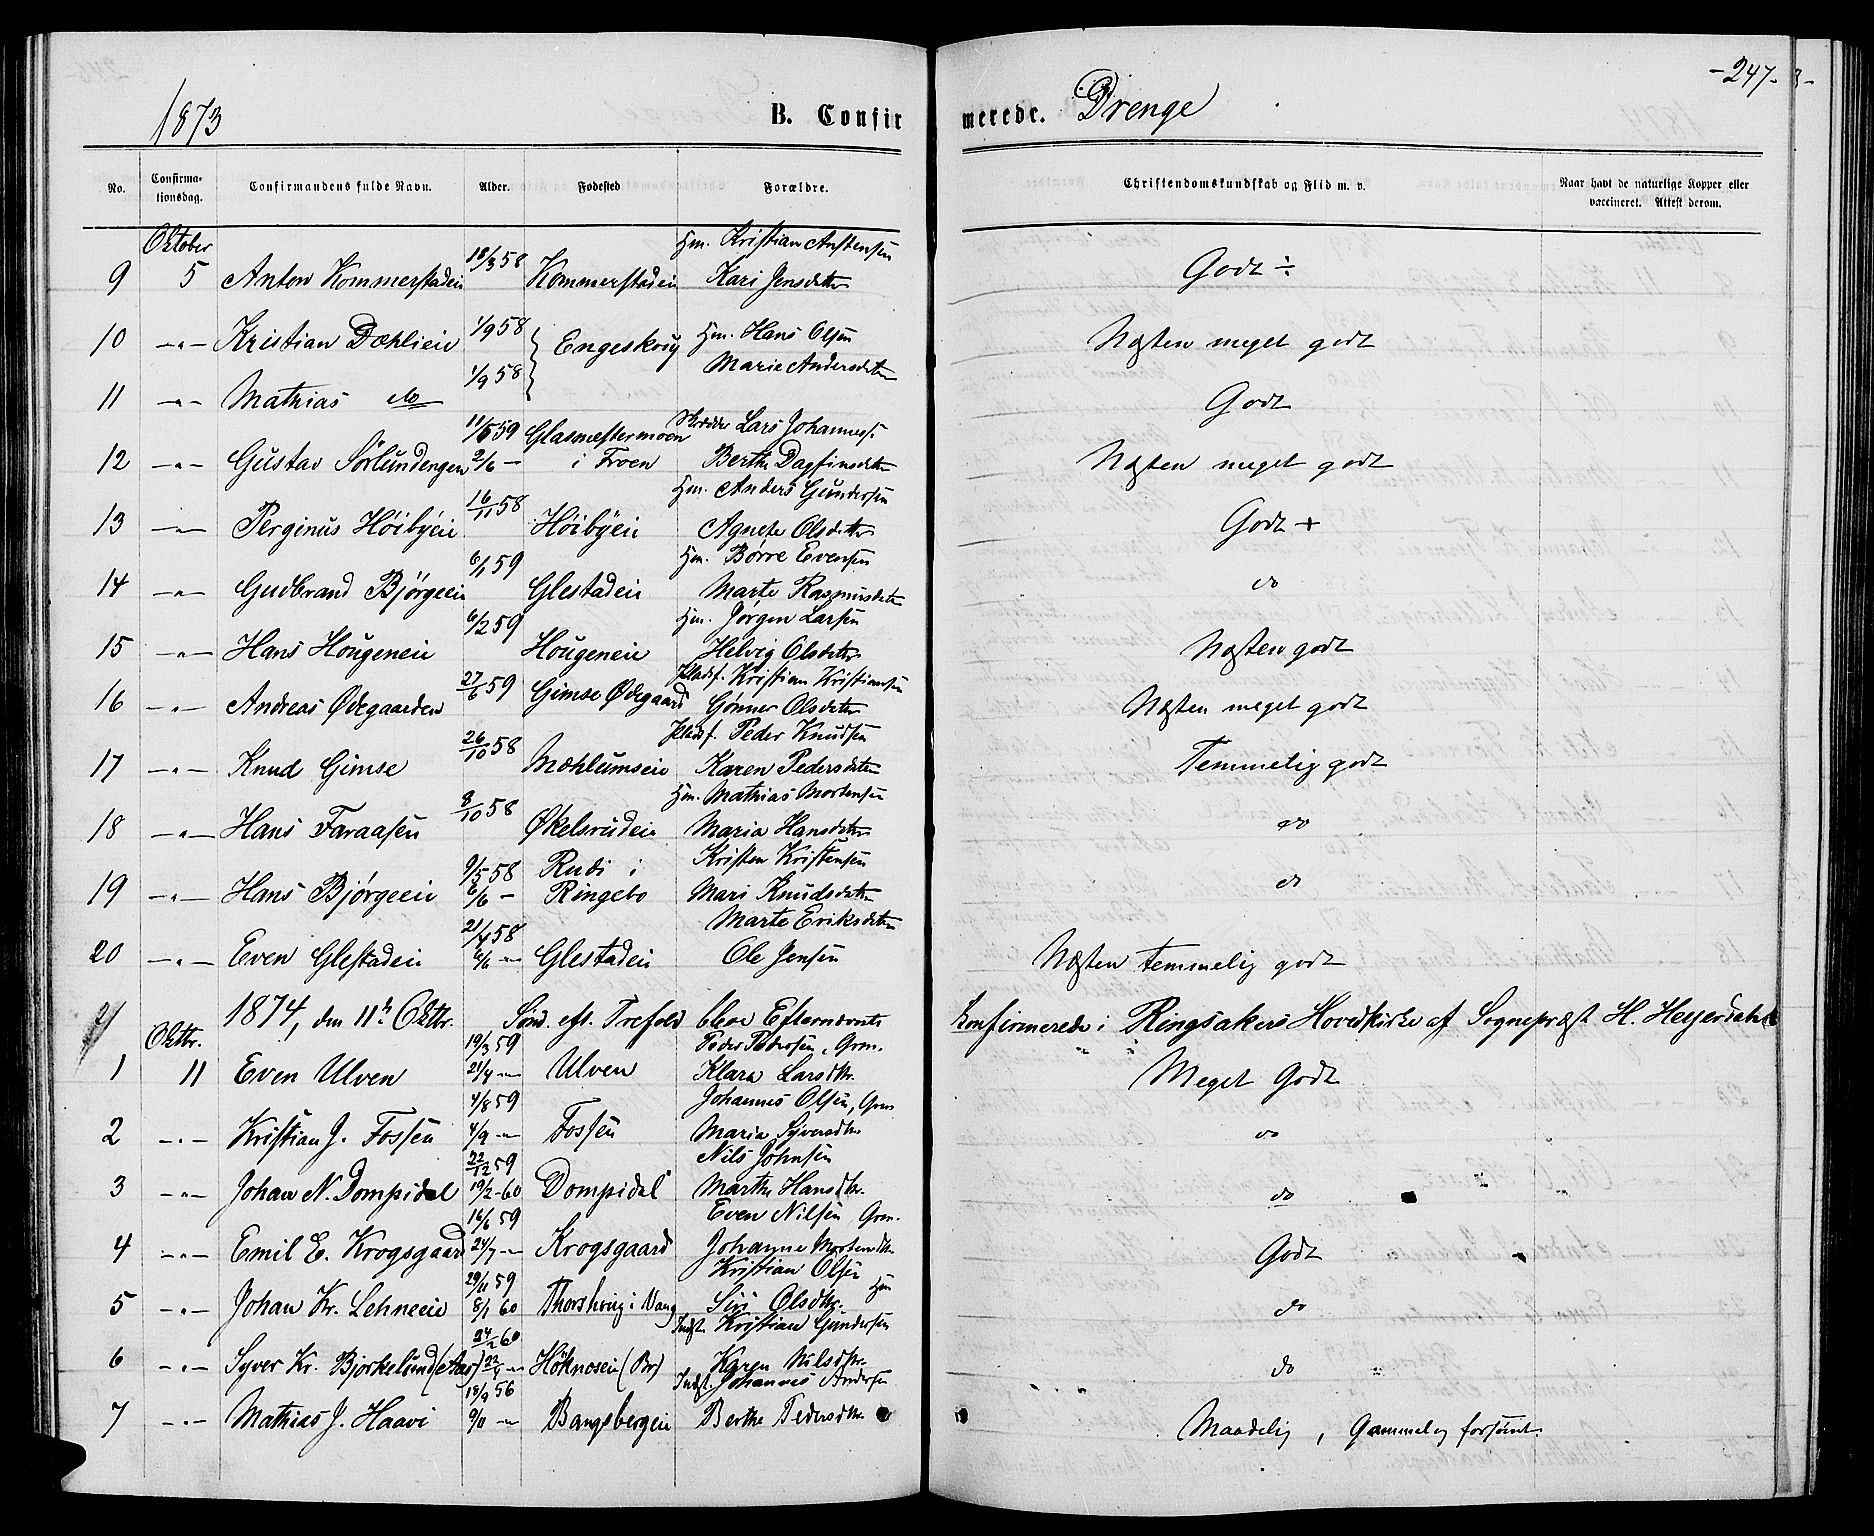 -247-
1873 B. Confirmerede. Drenge
No. Confirmationsdag. Confirmandens fulde Navn. Alder. Fødested Forældre. Christendomskundskab og Flid m. v. Naar havt de naturlige Kopper eller vaccineret. Attest derom.
Oktober 18/3 58 Hm. Kristian Austensen
9 5 Anton Kommerstadeie Kommerstadeie Kari Jensdatter Godt ÷
10 —"— Kristian Dæhlieie 1/9 58 Engeskrug Hm. Hans Olsen Næsten meget godt
1/9 58 Marie Andersdatter
11 —"— Mathias do Godt
11/5 59 Glasmestermoen Lars Johanness.
12 —"— Gustav Sørlundengen 2/6 — i Froen Berthe Dagfinsdatter Næsten meget godt
16/11 58 Hm. Anders Gundersen
13 —"— Perginus Höibÿeie Höibÿeie Agnete Olsdatter Godt +
6/1 59 Hm. Børre Evensen
14 —"— Gudbrand Bjørgeeie Glestadeie Marte Rasmusdatter do
6/2 59 Hm. Jørgen Larsen
15 —"— Hans Hougeneie Hougeneie Helvig Olsdatter Næsten godt
27/6 59 Pladsf. Kristian Kristiansen
16 —"— Andreas Ødegaarden Gimse Ødegaard Gönner Olsdatter Næsten meget godt
26/10 58 Pladsf. Peder Knudsen
17 —"— Knud Gimse Mæhlumseie Karen Pedersdatter Temmelig godt
8/10 58 Hm. Mathias Mortensen
18 —"— Hans Faraasen Økelsrudeie Maria Hansdatter do
9/5 58 Rudi i Kristen Kristensen
19 —"— Hans Bjørgeeie 6/6 — Ringebo Mari Knudsdatter do
21/4 58 Marte Eriksdatter
20 —"— Even Glestadeie 6/6 — Glestadeie Ole Jensen Næsten temmelig godt
1874, den 11te Oktbr. Sønd. eft. Trefold. bleve Efternævnte Konfirmerede i Ringsakers Hovedkirke af Sognepræst H. Heyerdahl
Oktbr. 19/3 59 Peder Pedersen, Grm.
1 11 Even Ulven 21/4 — Ulven Klara Larsdtr. Meget Godt
4/8 59 Johannes Olsen, Grm
2 —"— Kristian J. Fossen 4/9 — Fossen Maria Syversdtr do
22/12 59 Nils Johnsen
3 —"— Johan N. Dompidal 19/2 60 Dompidal Marthe Hansdtr. do
16/6 59 Even Nilsen, Grm.
4 —"— Emil E. Krogsgaard 24/7 — Krogsgaard Johanne Mortensdtr Godt
29/11 59 Kristian Olsen Hm
5 —"— Johan Kr. Lehneeie 8/1 60 Thorshoug i Vang Siri Olsdtr. do
24/2 60 Indst. Kristian Gundersen
6 —"— Syver Kr. Bjørkelund (Aas) — Höknoseie (Br) Karen Nilsdtr. do
18/9 56 Indst. Johannes Andersen
7 —"— Mathias J. Haavi 9/11 — Bangsbergeie Berthe Pedersdtr. Maadelig, Gammel og forsømt.